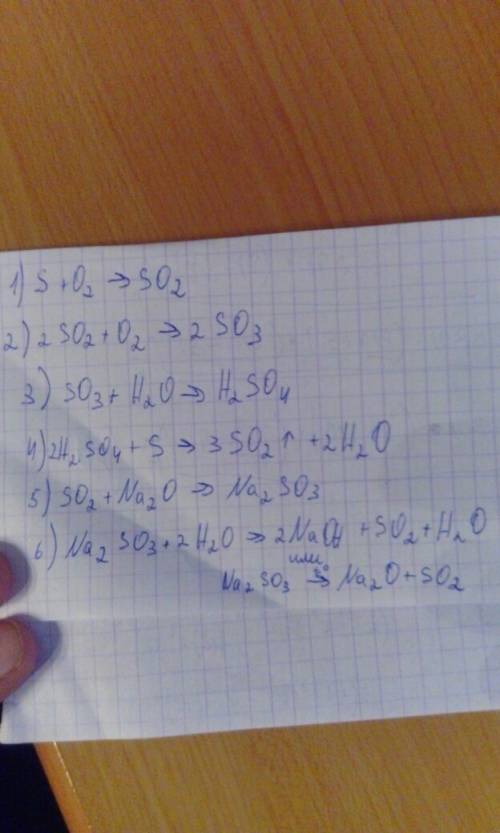 1) S + O2 → SO2
2) 2SO2 + O2 → 2SO3
3) SO3 + H2O → H2SO4
4) 2H2SO4 + S → 3SO2↑ + 2H2O
5) SO2 + Na2O → Na2SO3
6) Na2SO3 + 2H2O → 2NaOH + SO2 + H2O
или
Na2SO3 → Na2O + SO2